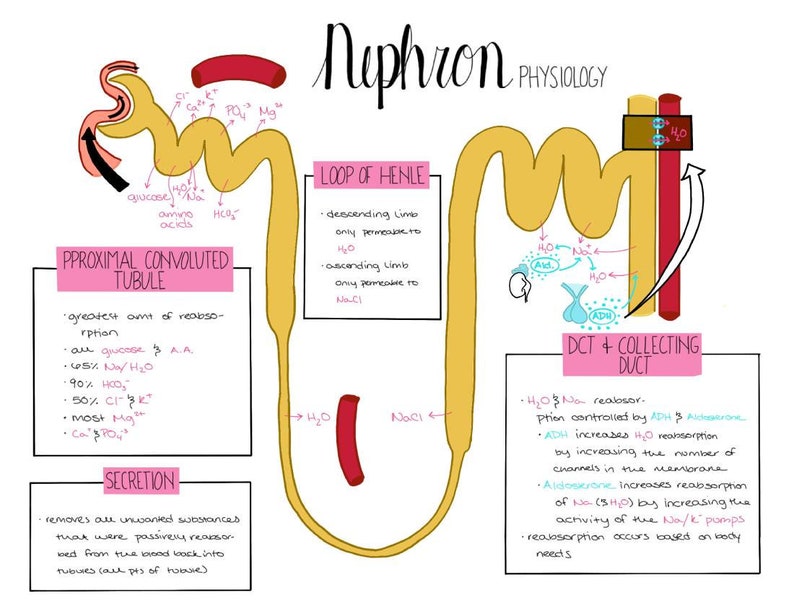 Nephron PHYSIOLOGY
Cl⁻
K⁺
Ca²⁺
PO₄⁻³
Mg²⁺
glucose
H₂O/
Na⁺
amino
acids
HCO₃⁻
PPROXIMAL CONVOLUTED
TUBULE
• greatest amt of reabso-
rption
• all glucose & A.A.
• 65% Na/H₂O
• 90% HCO₃⁻
• 50% Cl⁻ & K⁺
• most Mg²⁺
• Ca⁺ & PO₄⁻³
SECRETION
• removes all unwanted substances
that were passively reabsor-
bed from the blood back into
tubules (all pts of tubule)
LOOP OF HENLE
• descending limb
only permeable to
H₂O
• ascending limb
only permeable to
NaCl
H₂O
NaCl
H₂O
H₂O
Na⁺
Ald.
H₂O
ADH
DCT & COLLECTING
DUCT
• H₂O & Na reabsor-
ption controlled by ADH & Aldosterone
• ADH increases H₂O reabsorption
by increasing the number of
channels in the membrane
• Aldosterone increases reabsorption
of Na (& H₂O) by increasing the
activity of the Na/K⁻ pumps
• reabsorption occurs based on body
needs